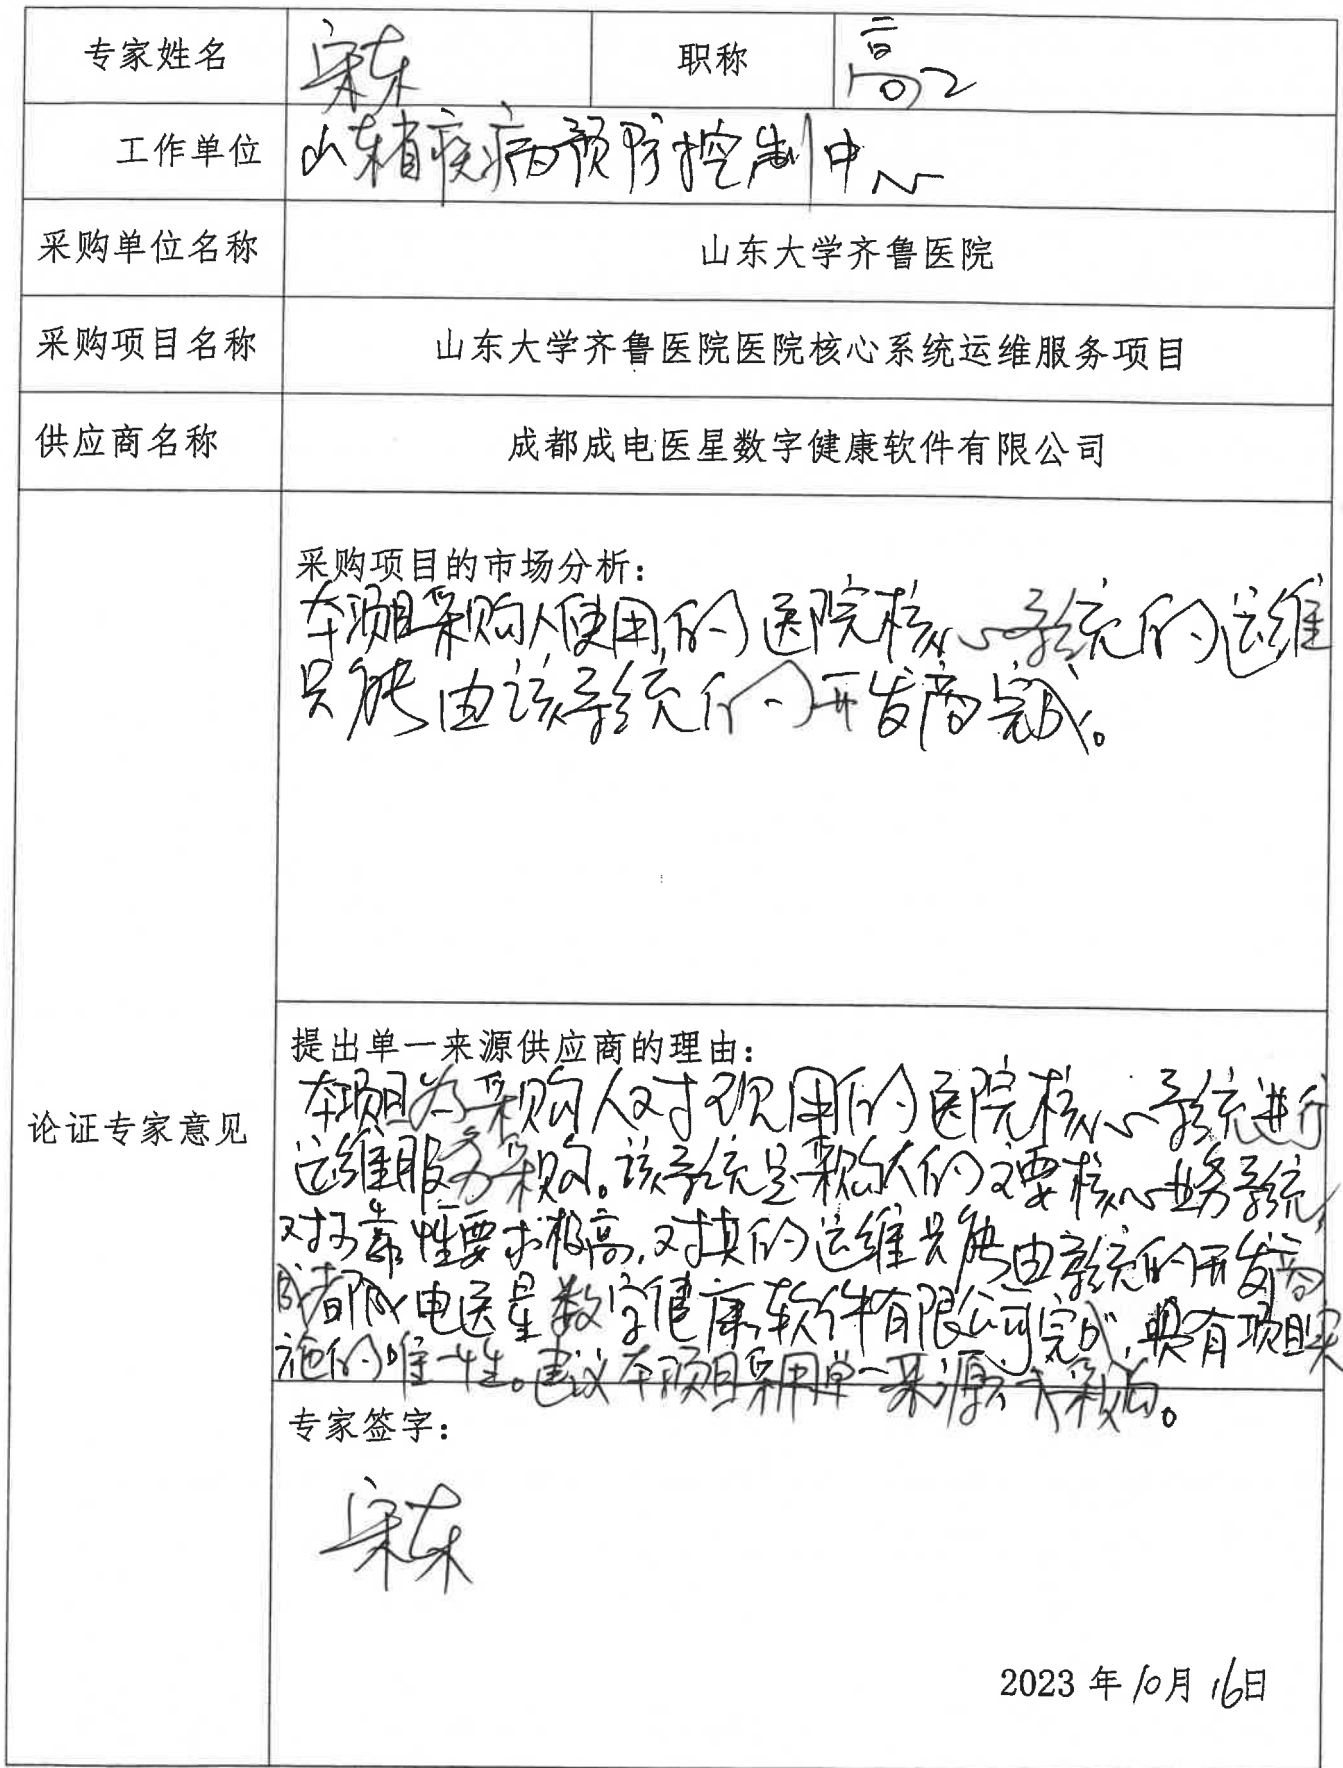 专家姓名 宋东 职称 高工
工作单位 山东省疾病预防控制中心
采购单位名称 山东大学齐鲁医院
采购项目名称 山东大学齐鲁医院医院核心系统运维服务项目
供应商名称 成都成电医星数字健康软件有限公司
采购项目的市场分析：
本项目采购人使用的医院核心系统的运维
只能由该系统的开发商完成。
论证专家意见
提出单一来源供应商的理由：
本项目为采购人对现用的医院核心系统进行
运维服务采购。该系统是采购人的主要核心业务系统，
对可靠性要求极高，对其的运维只能由系统的开发商
成都成电医星数字健康软件有限公司完成，具有项目实
施的唯一性。建议本项目采用单一来源方式采购。
专家签字：
宋东
2023 年 10 月 16 日